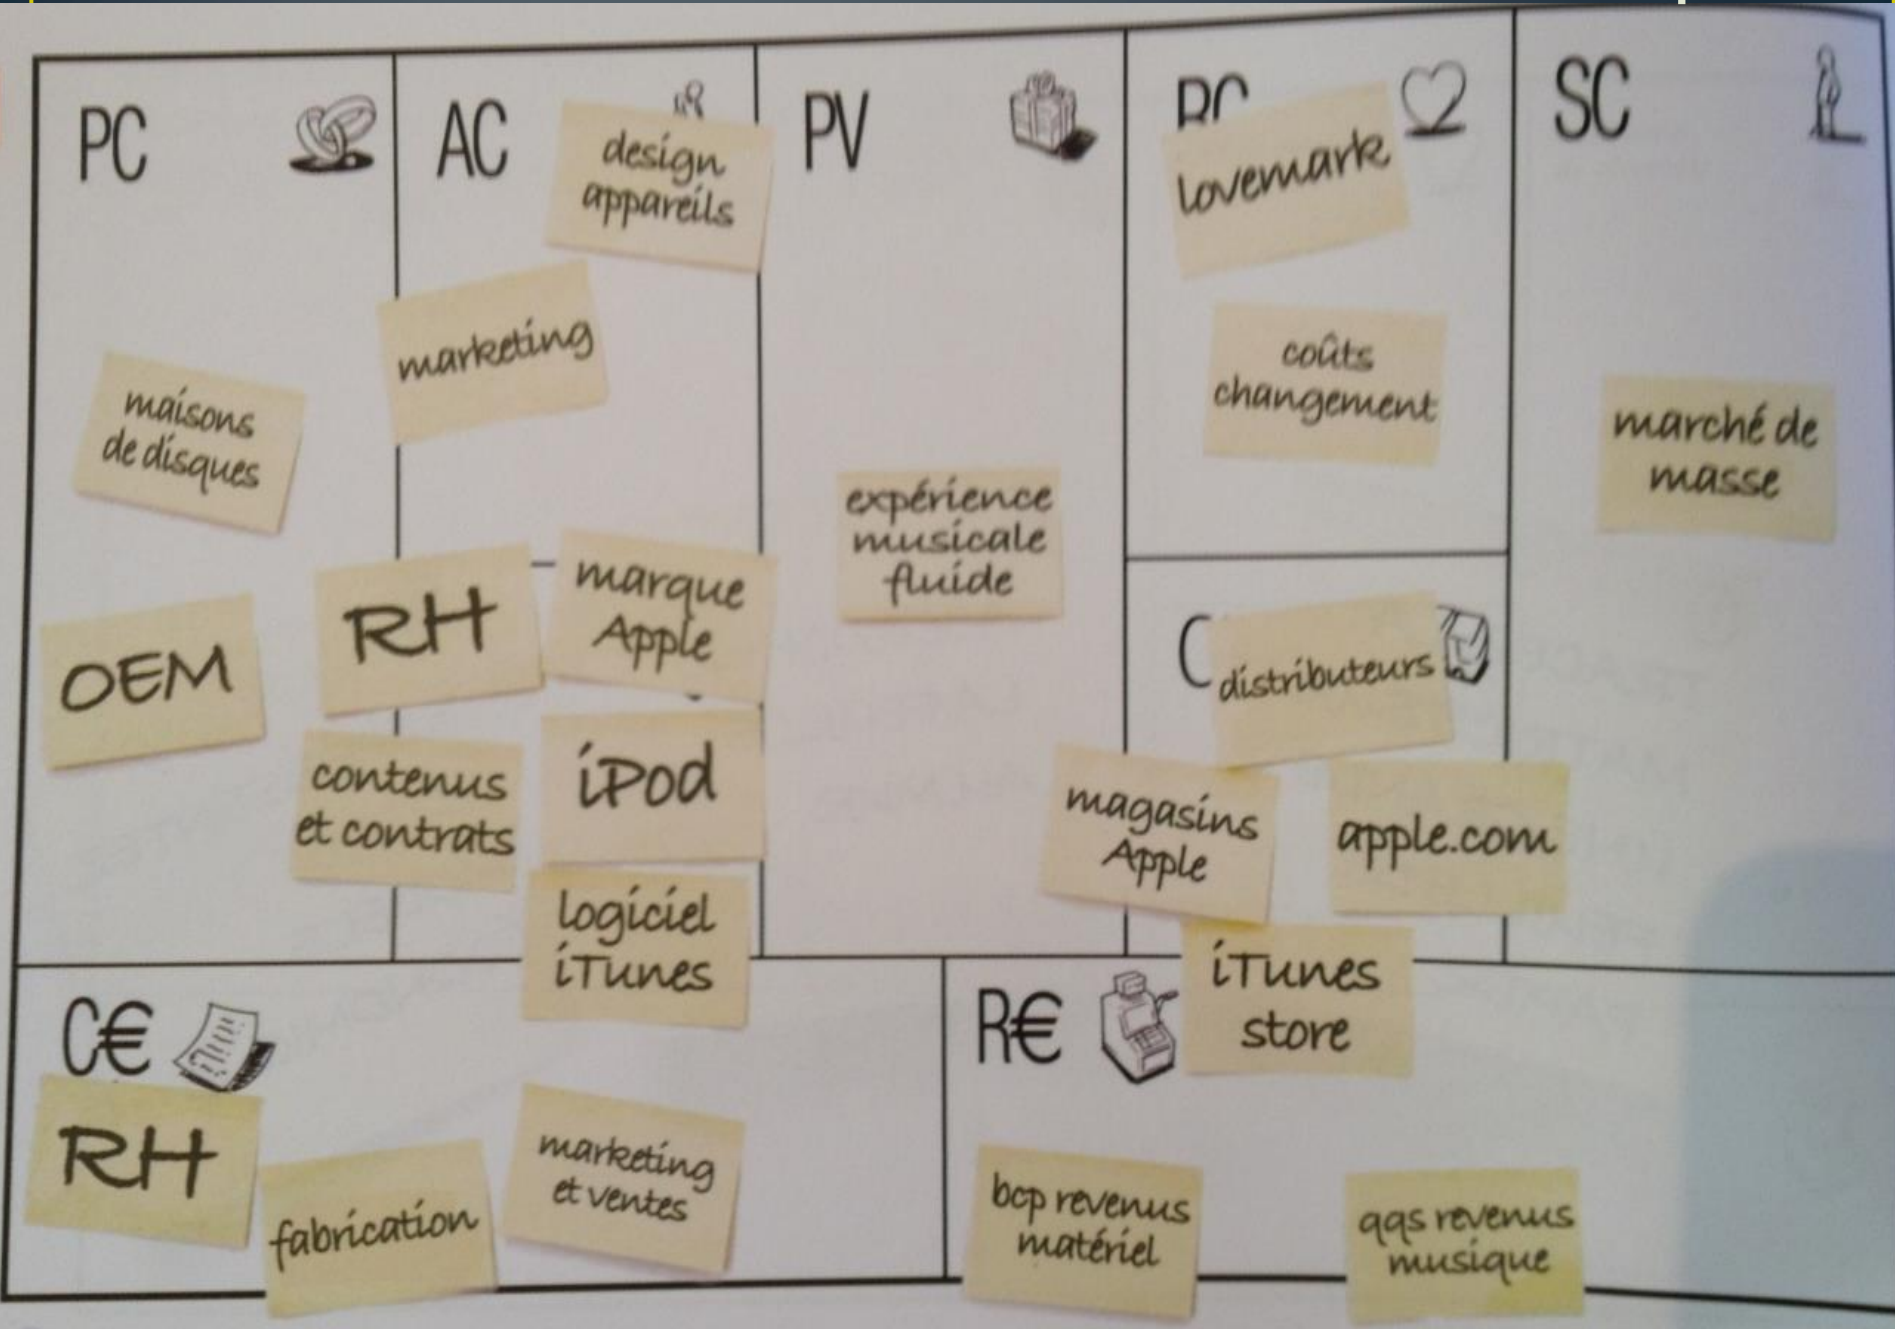 PC
maisons
de disques
OEM
AC
design
appareils
marketing
RH
marque
Apple
contenus
et contrats
iPod
logiciel
iTunes
PV
expérience
musicale
fluide
RC
lovemark
coûts
changement
C
distributeurs
magasins
Apple
apple.com
iTunes
store
SC
marché de
masse
C€
RH
fabrication
marketing
et ventes
R€
bcp revenus
matériel
qqs revenus
musique